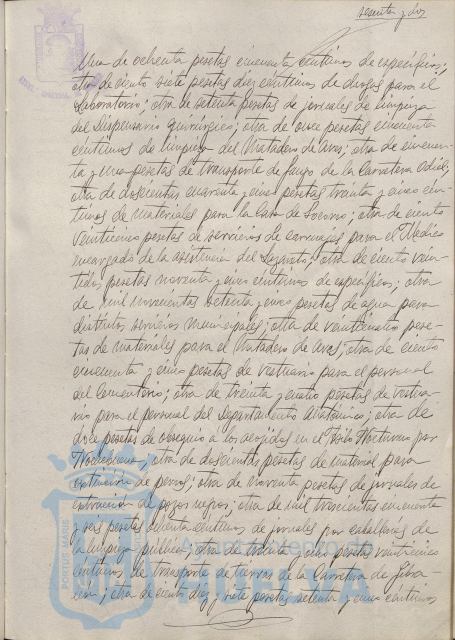 sesenta y dos
Una de ochenta pesetas cincuenta céntimos de específicos;
otra de ciento siete pesetas diez céntimos de drogas para el
Laboratorio; otra de setenta pesetas de jornales de limpieza
del Dispensario Quirúrgico; otra de once pesetas cincuenta
céntimos de limpieza del Matadero de aves; otra de cincuen-
ta y una pesetas de transporte de fango de la Carretera Odiel;
otra de doscientas cuarenta y cinco pesetas treinta y cinco cén-
timos de materiales para la Casa de Socorro; otra de ciento
veinticinco pesetas de servicios de carruajes para el Médico
encargado de la asistencia del Lazareto; otra de ciento vein-
tidos pesetas noventa y cinco céntimos de específicos; otra
de mil novecientas setenta y cinco pesetas de agua para
distintos servicios municipales; otra de veinticuatro pese-
tas de materiales para el Matadero de aves; otra de ciento
cincuenta y cinco pesetas de vestuario para el personal
del Cementerio; otra de treinta y cuatro pesetas de vestua-
rio para el personal del Departamento Anatómico; otra de
doce pesetas de obsequio a los acogidos en el Asilo Nocturno por
Nochebuena; otra de doscientas pesetas de material para
extinción de perros; otra de noventa pesetas de jornales de
extracción de pozos negros; otra de mil trescientas cincuenta
y seis pesetas cincuenta céntimos de jornales por escobas de
la limpieza pública; otra de treinta y seis pesetas veinticinco
céntimos de transporte de tierras de la Carretera de Gibra-
león; otra de ciento diez y siete pesetas setenta y cinco céntimos
PORTUS MARIS
Ayuntamiento de
HUELVA